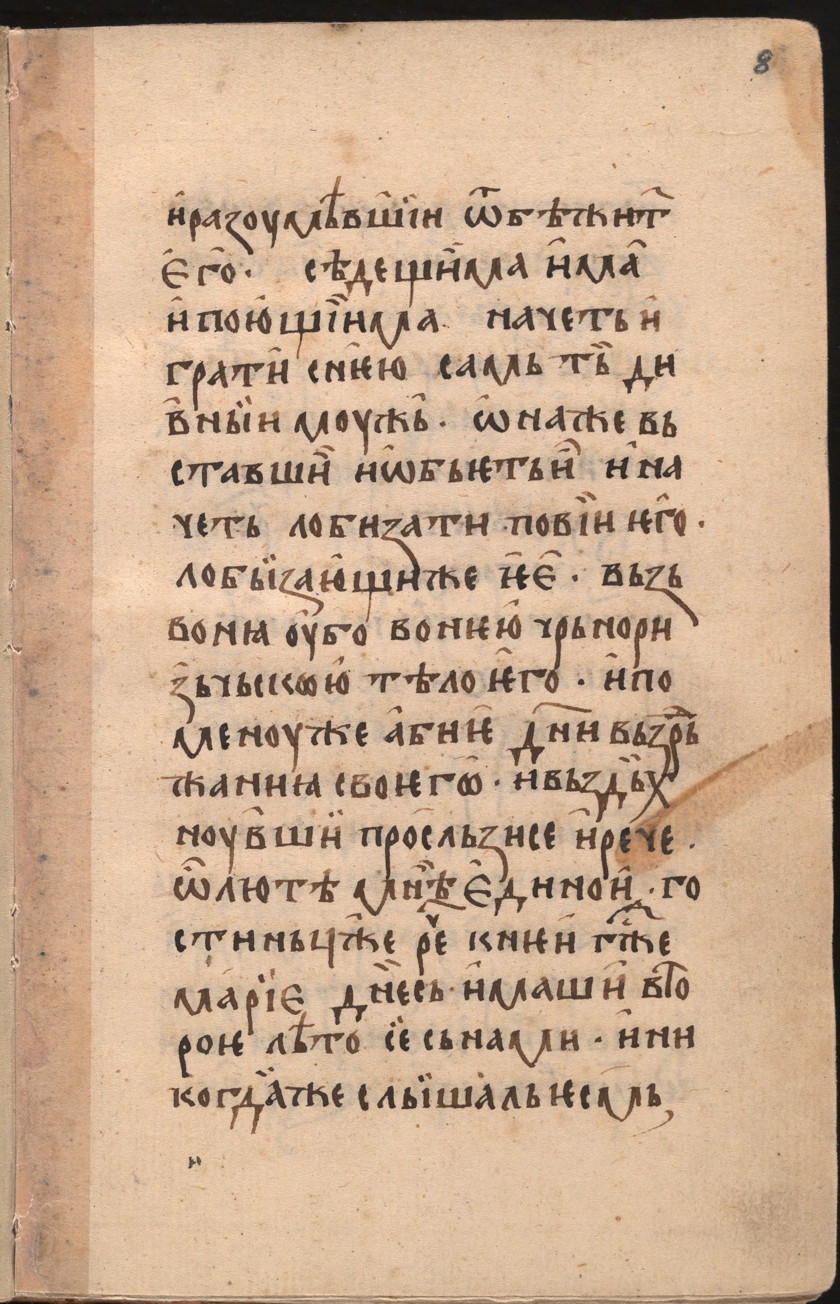 8
и҆разоумѣ́вшїи ѿбѣжит̑
Є҆го̑. сѣдещи̏ма и҆ма̑
и҆ пою҆щі̏има. начеть и҆
грати̑ снѥю самь ть̏ ди
в̑ныїи моужь̑. ѡ҆наже вь
ставши̏ иѡ҆бьѥть и̏ и҆ на
четь лобизати повїи ѥго̑.
лобыїзаю҆щиже ѥ҆Є҆. вьзь
вонꙗ оу҆бо вонѥю҆ чрьнори
з̑ьчьскою҆ тѣло ѥ҆го. и҆ по
меноуже а҆биѥ дн҃и вьзрь̏
жанїꙗ своѥгѡ̑. и вьздь̏х
ноу҆вши̏ просльзисе и҆рече.
ѽлютѣ мнѣ̏ Є҆диной. го
стиньц҆же ре̏ кнѥи г҃ж̑е
марїЄ дн̏есь и҆маши вто
роѥ лѣ́то сЄ сьнами. и҆ ни
когда̏же слыїшаль ѥсмь,
и